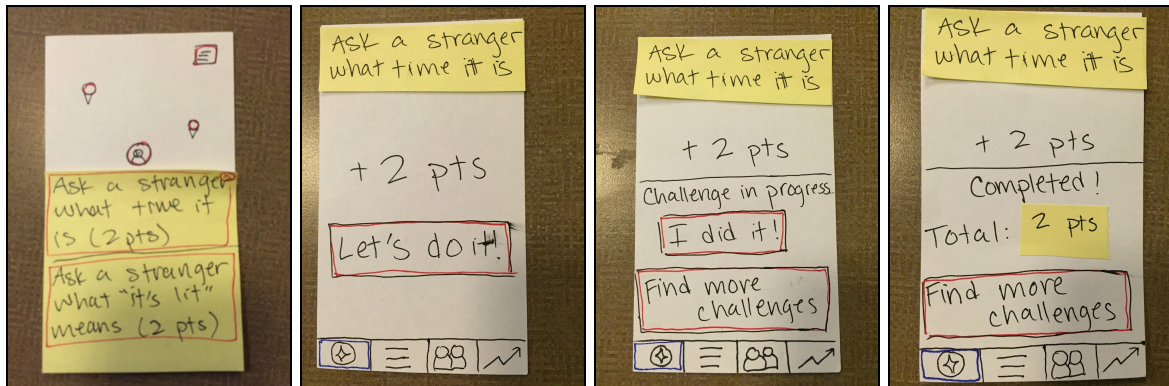 Ask a stranger
what time it
is (2 pts)
Ask a stranger
what "it's lit"
means (2 pts)
Ask a stranger
what time it is
+ 2 pts
Let's do it!
Ask a stranger
what time it is
+ 2 pts
Challenge in progress
I did it!
Find more
challenges
Ask a stranger
what time it is
+ 2 pts
Completed!
Total: 2 pts
Find more
challenges